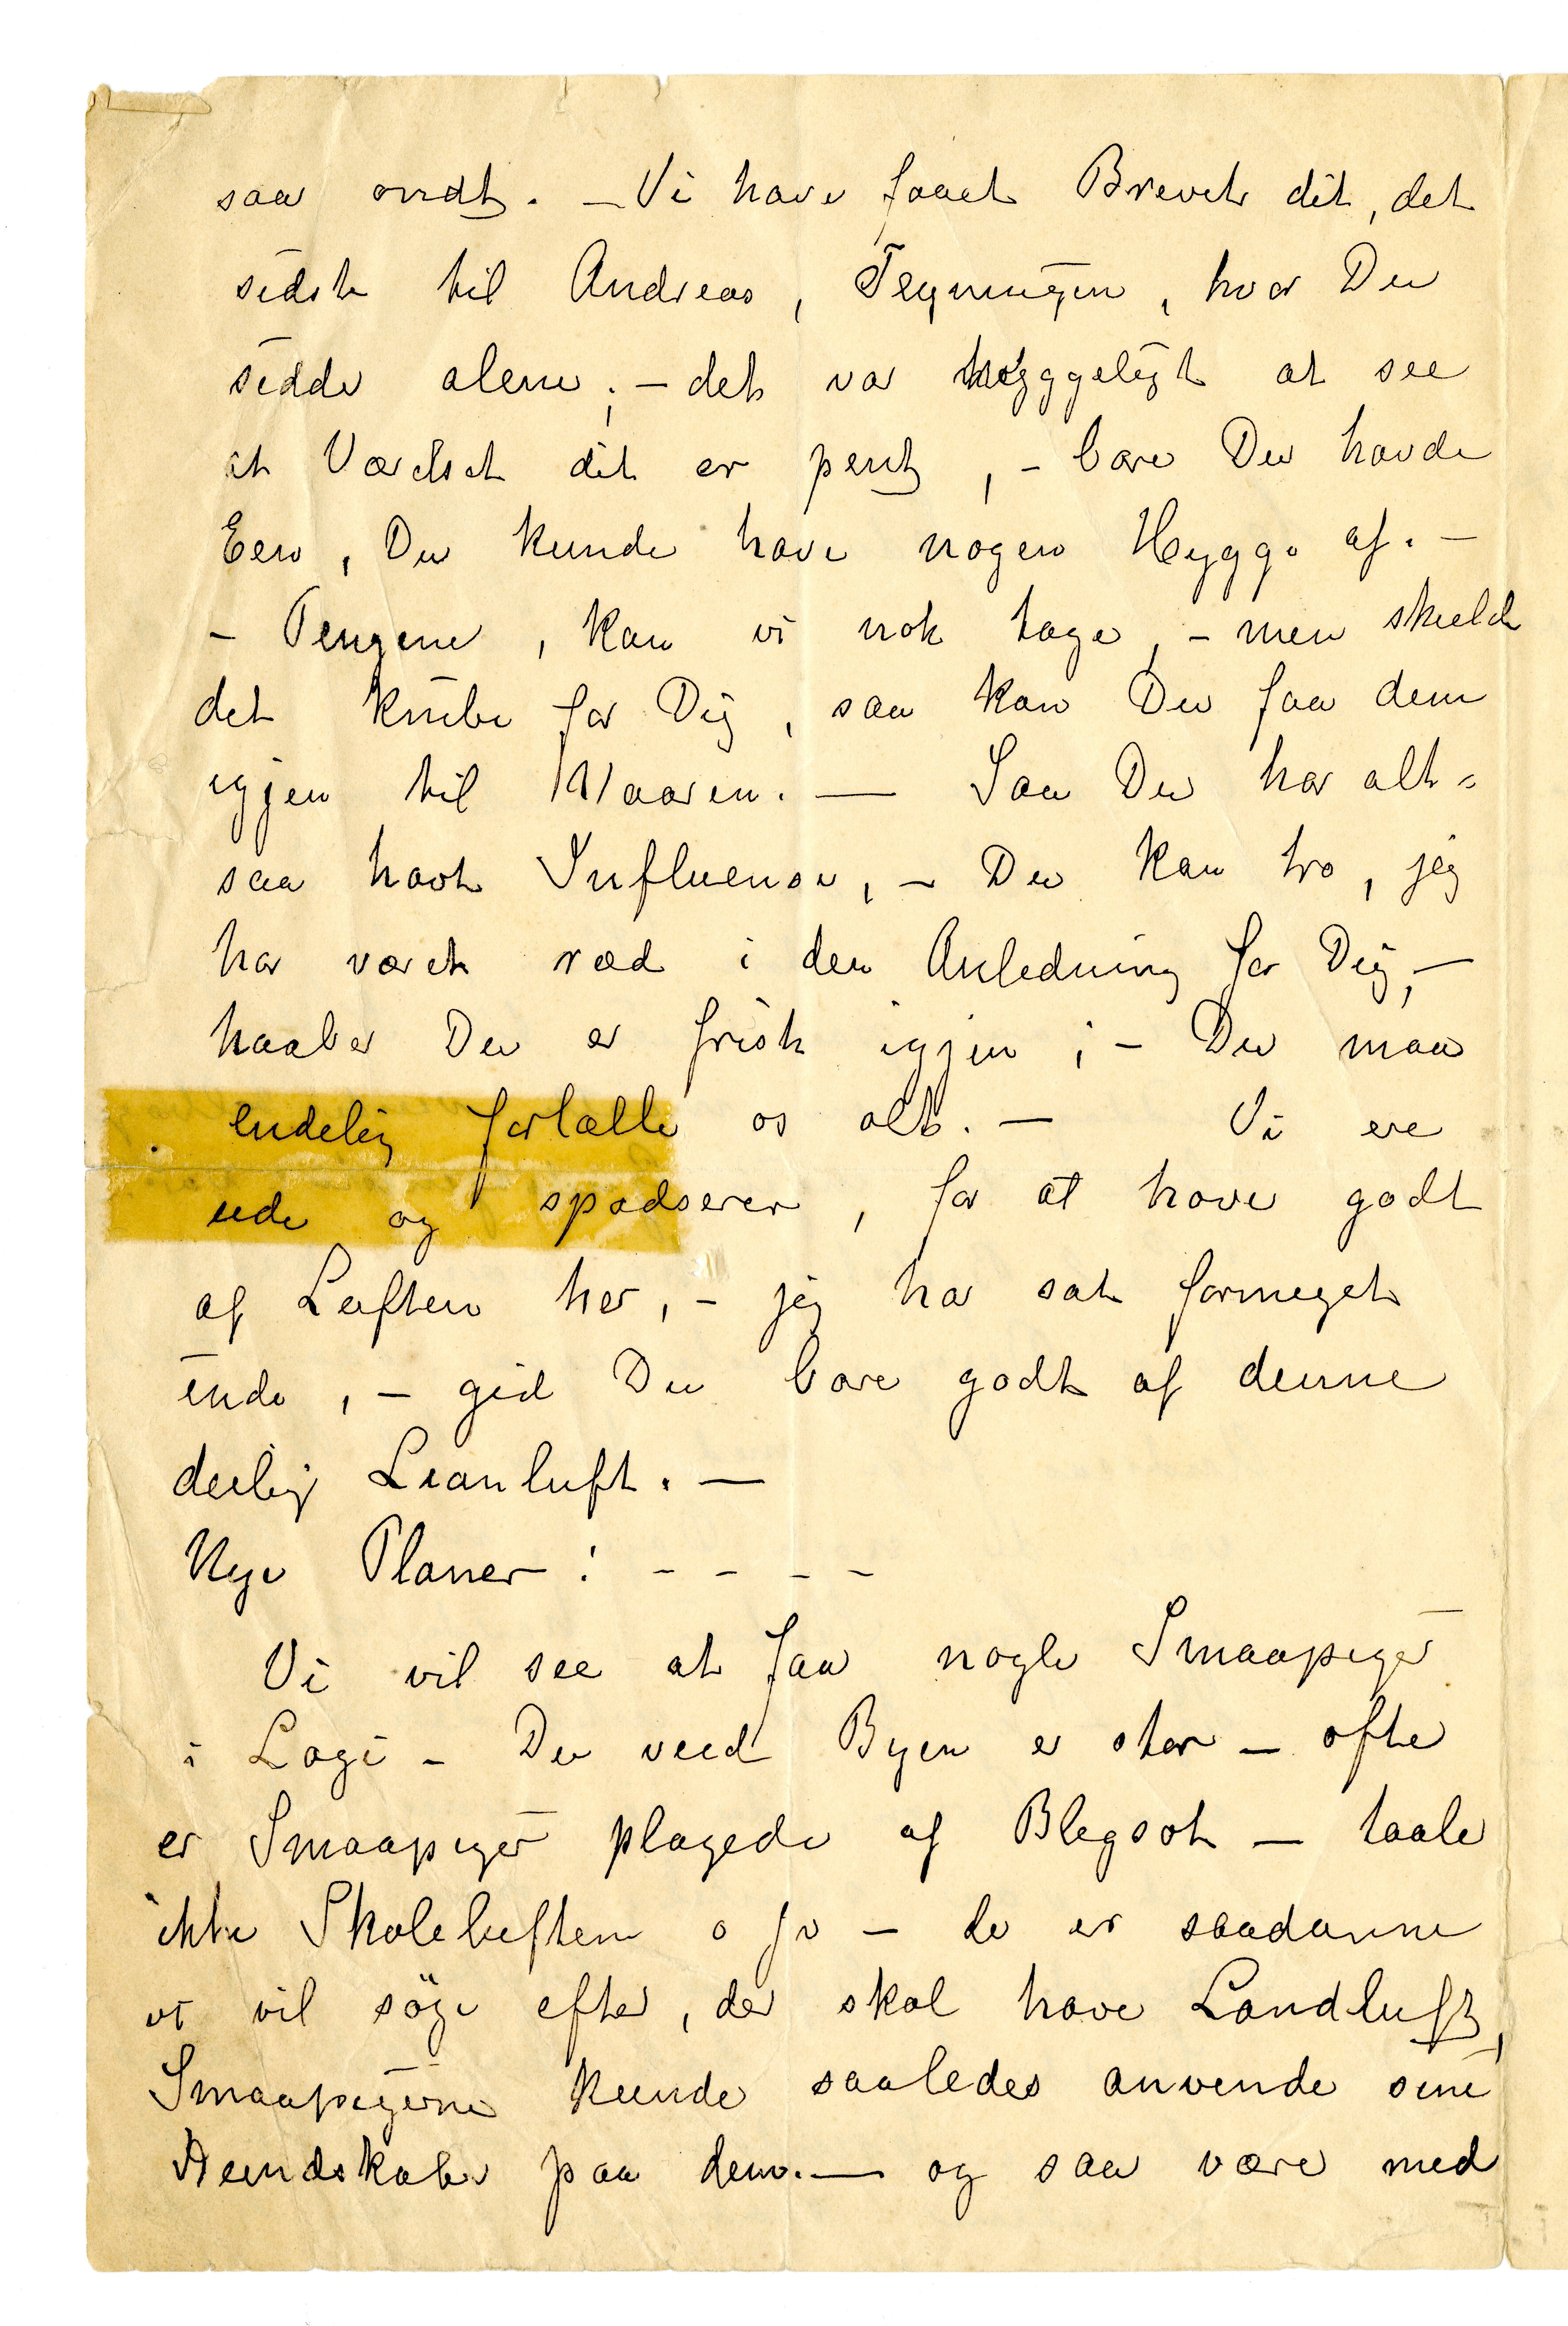 saa ondt. – Vi have faaet Brevet dit, det
sidste til Andreas, Tegningen, hvor Du
sidder alene; – det var hyggeligt at see
at Værelset dit er pent, – bare Du havde
Een, Du kunde have nogen Hygge af. –
– Pengene, kan vi nok tage, – men skulde
det knibe for Dig, saa kan Du faa dem
igjen til Vaaren. — Saa Du har alt=
saa havt Influensa, – Du kan tro, jeg
har været ræd i den Anledning for Dig, –
haaber Du er frisk igjen; – Du maa
endelig fortælle os alt. — Vi ere
ude og spadserer, for at have godt
af Luften her, – jeg har sat formeget
inde, – gid Du bare godt af denne
deilig Lianluft. —
Nye Planer: - - - -
Vi vil see at faa nogle Smaapiger
i Logi – Du veed Byen er stor – ofte
er Smaapiger plagede af Blegsot – taale
ikke Skoleluften o s v – de er saadanne
vi vil söge efter, der skal have Landluft,
Smaapigerne kunde saaledes anvende sine
Kundskaber paa dem. — og saa være med